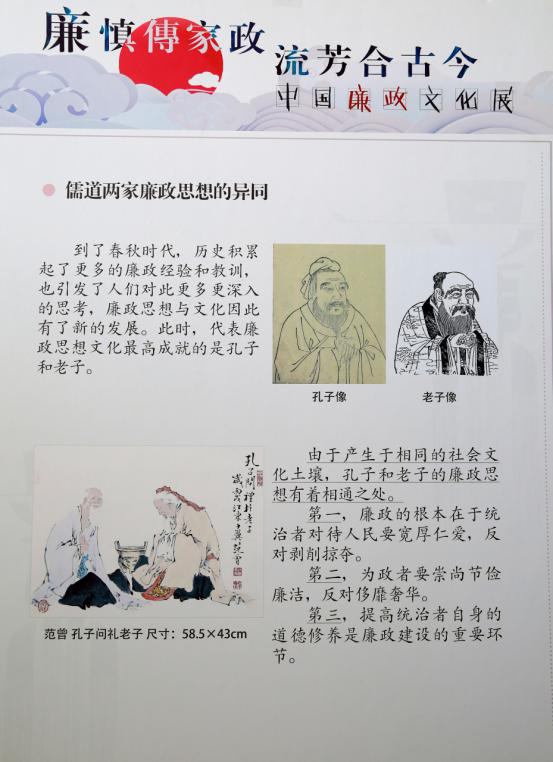 廉慎傳家政
流芳合古今
中国廉政文化展
儒道两家廉政思想的异同
到了春秋时代，历史积累
起了更多的廉政经验和教训，
也引发了人们对此更多更深入
的思考，廉政思想与文化因此
有了新的发展。此时，代表廉
政思想文化最高成就的是孔子
和老子。
孔子像
老子像
孔子問禮於老子
范曾 孔子问礼老子 尺寸：58.5×43cm
由于产生于相同的社会文
化土壤，孔子和老子的廉政思
想有着相通之处。
第一，廉政的根本在于统
治者对待人民要宽厚仁爱，反
对剥削掠夺。
第二，为政者要崇尚节俭
廉洁，反对侈靡奢华。
第三，提高统治者自身的
道德修养是廉政建设的重要环
节。